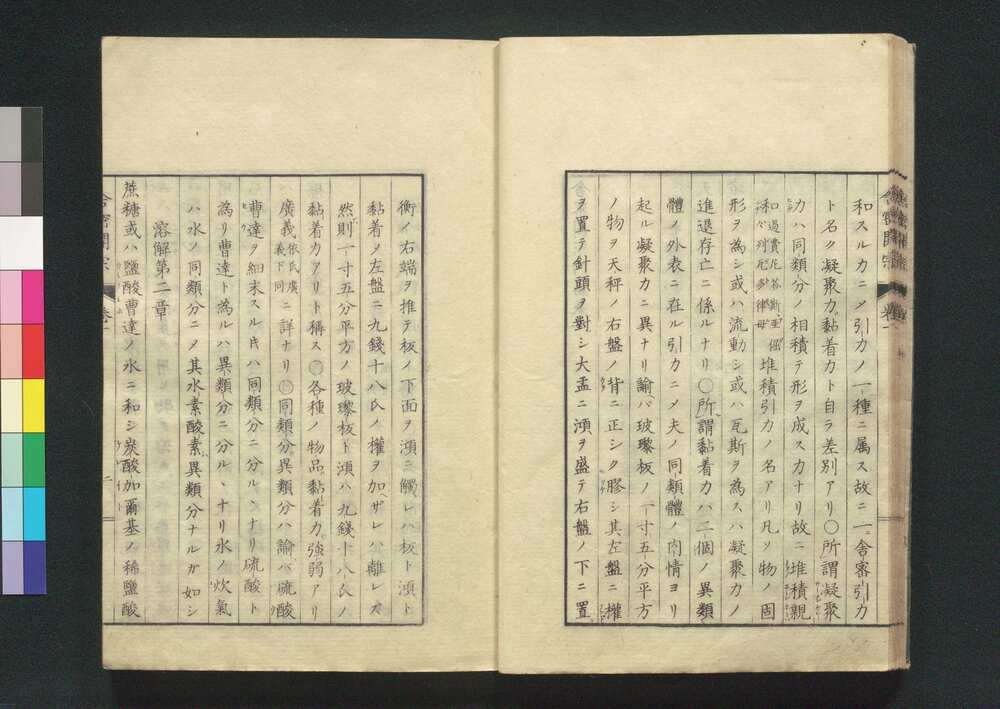 和スル力ニㄨ引力ノ一種ニ属ス故ニ一舎密引力
ト名ク凝聚力黏着力ト自ラ差別アリ〇所謂凝聚
力ハ同類分ノ相積テ形ヲ成ス力ナリ故ニ堆積親
和 堆積引力ノ名アリ凡ソ物ノ固
形ヲ為シ或ハ流動シ或ハ瓦斯ヲ為スハ凝聚力ノ
進退存亡ニ係ルナリ〇所謂黏着力ハ二個ノ異類
體ノ外表ニ在ル引力ニㄨ夫ノ同類體ノ内情ヨリ
起ル凝聚力ニ異ナリ諭バ玻瓈板ノ一寸五分平方
ノ物ヲ天秤ノ右盤ノ背ニ正シク膠シ其左盤ニ權
ヲ置テ針頭ヲ對シ大盂ニ澒ヲ盛テ右盤ノ下ニ置
衡ノ右端ヲ推テ板ノ下面ヲ澒ニ觸レハ板ト澒ト
黏着ㄨ左盤ニ九錢十八氏ノ權ヲ加ヘザレハ離レズ
然則一寸五分平方ノ玻瓈板ト澒ハ九錢十八氏ノ
黏着力アリト稱ス〇各種ノ物品黏着力強弱アリ
廣義 依氏廣義下同 ニ詳ナリ〇同類分異類分ハ諭バ硫酸
曹達ヲ細末スル片ハ同類分ニ分ルヽナリ硫酸ト
為リ曹達ト為ルハ異類分ニ分ルヽナリ水ノ炊氣
ハ水ノ同類分ニㄨ其水素酸素異類分ナルガ如シ
溶解第二章
蔗糖或ハ鹽酸曹達ノ水ニ和シ炭酸加爾基ノ稀鹽酸
舎密開宗